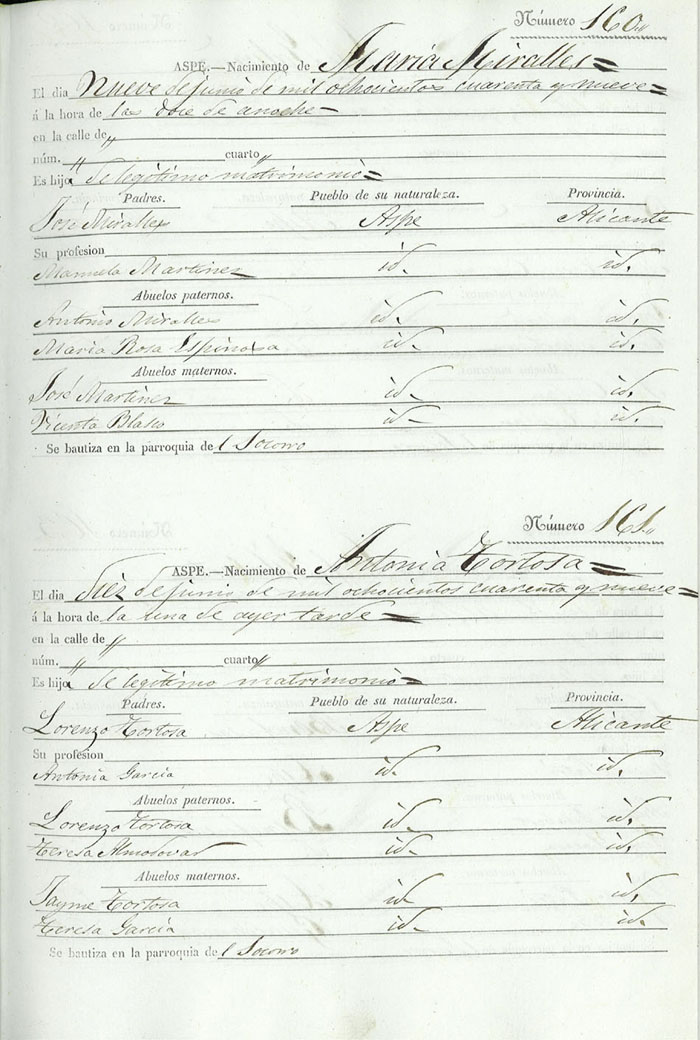 Número 160,,
ASPE.—Nacimiento de Maria Miralles=
El dia Nueve de junio de mil ochocientos cuarenta y nueve=
á la hora de las doce de anoche=
en la calle de,,
núm. ,, cuarto ,,
Es hija de legitimo matrimonio=
Padres. Pueblo de su naturaleza. Provincia.
José Miralles Aspe Alicante
Su profesion
Manuela Martinez id. id.
Abuelos paternos.
Antonio Miralles id. id.
Maria Rosa Espinosa id. id.
Abuelos maternos.
José Martinez id. id.
Vicenta Blasco id. id.
Se bautiza en la parroquia del Socorro
Número 161,,
ASPE.—Nacimiento de Antonia Tortosa=
El dia Diez de junio de mil ochocientos cuarenta y nueve=
á la hora de la una de ayer tarde=
en la calle de ,,
núm. ,, cuarto ,,
Es hija de legitimo matrimonio=
Padres. Pueblo de su naturaleza. Provincia.
Lorenzo Tortosa Aspe Alicante
Su profesion
Antonia Garcia id. id.
Abuelos paternos.
Lorenzo Tortosa id. id.
Teresa Almodovar id. id.
Abuelos maternos.
Jayme Tortosa id. id.
Teresa Garcia id. id.
Se bautiza en la parroquia del Socorro